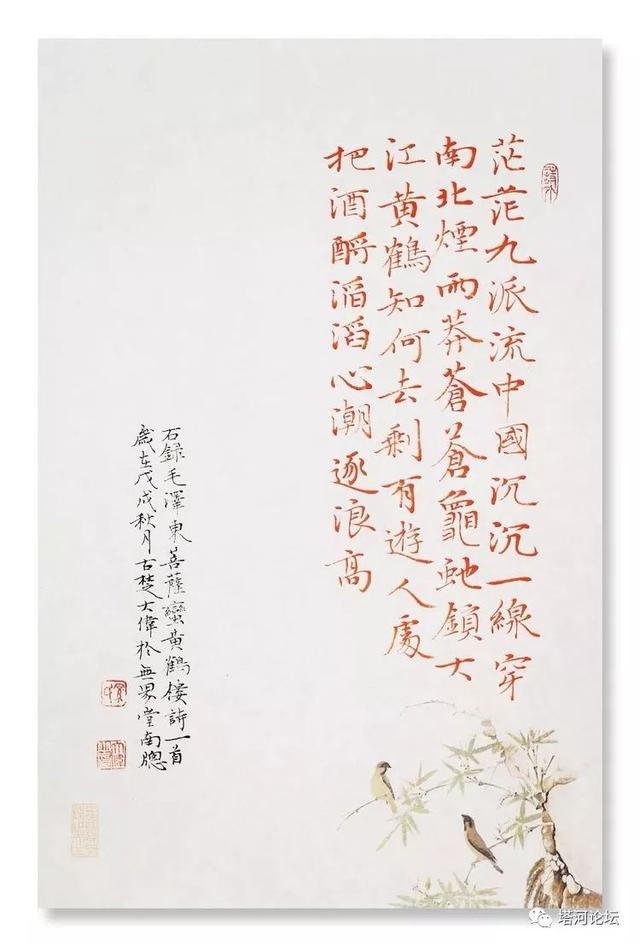 茫茫九派流中國沉沉一線穿
南北煙雨莽蒼蒼龜虵鎖大
江黃鶴知何去剩有遊人處
把酒酹滔滔心潮逐浪高
右錄毛澤東菩薩蠻黃鶴樓詩一首
歲在戊戌秋月古楚大偉於無界堂南牕
塔河论坛